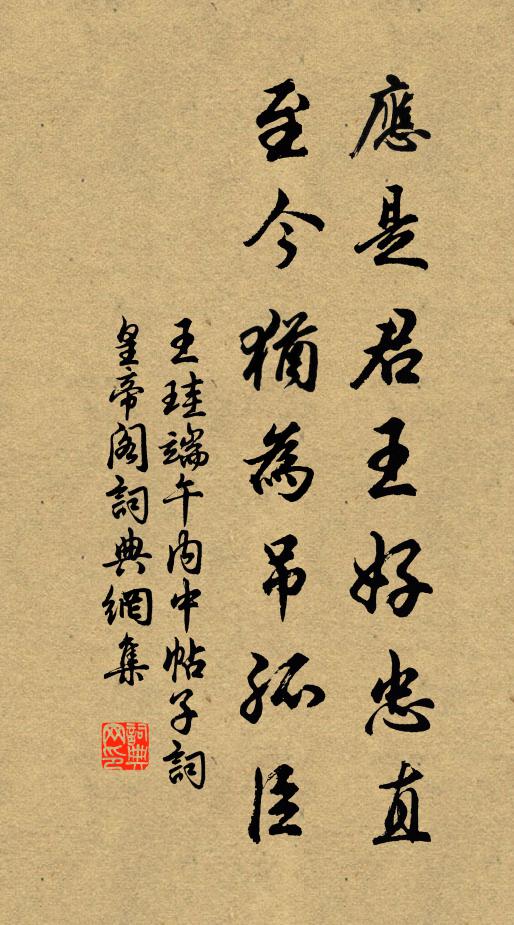 應是君王好忠直
至今猶為吊孤臣
王珪端午内中帖子詞
皇帝阁詞典網集
詞典网印